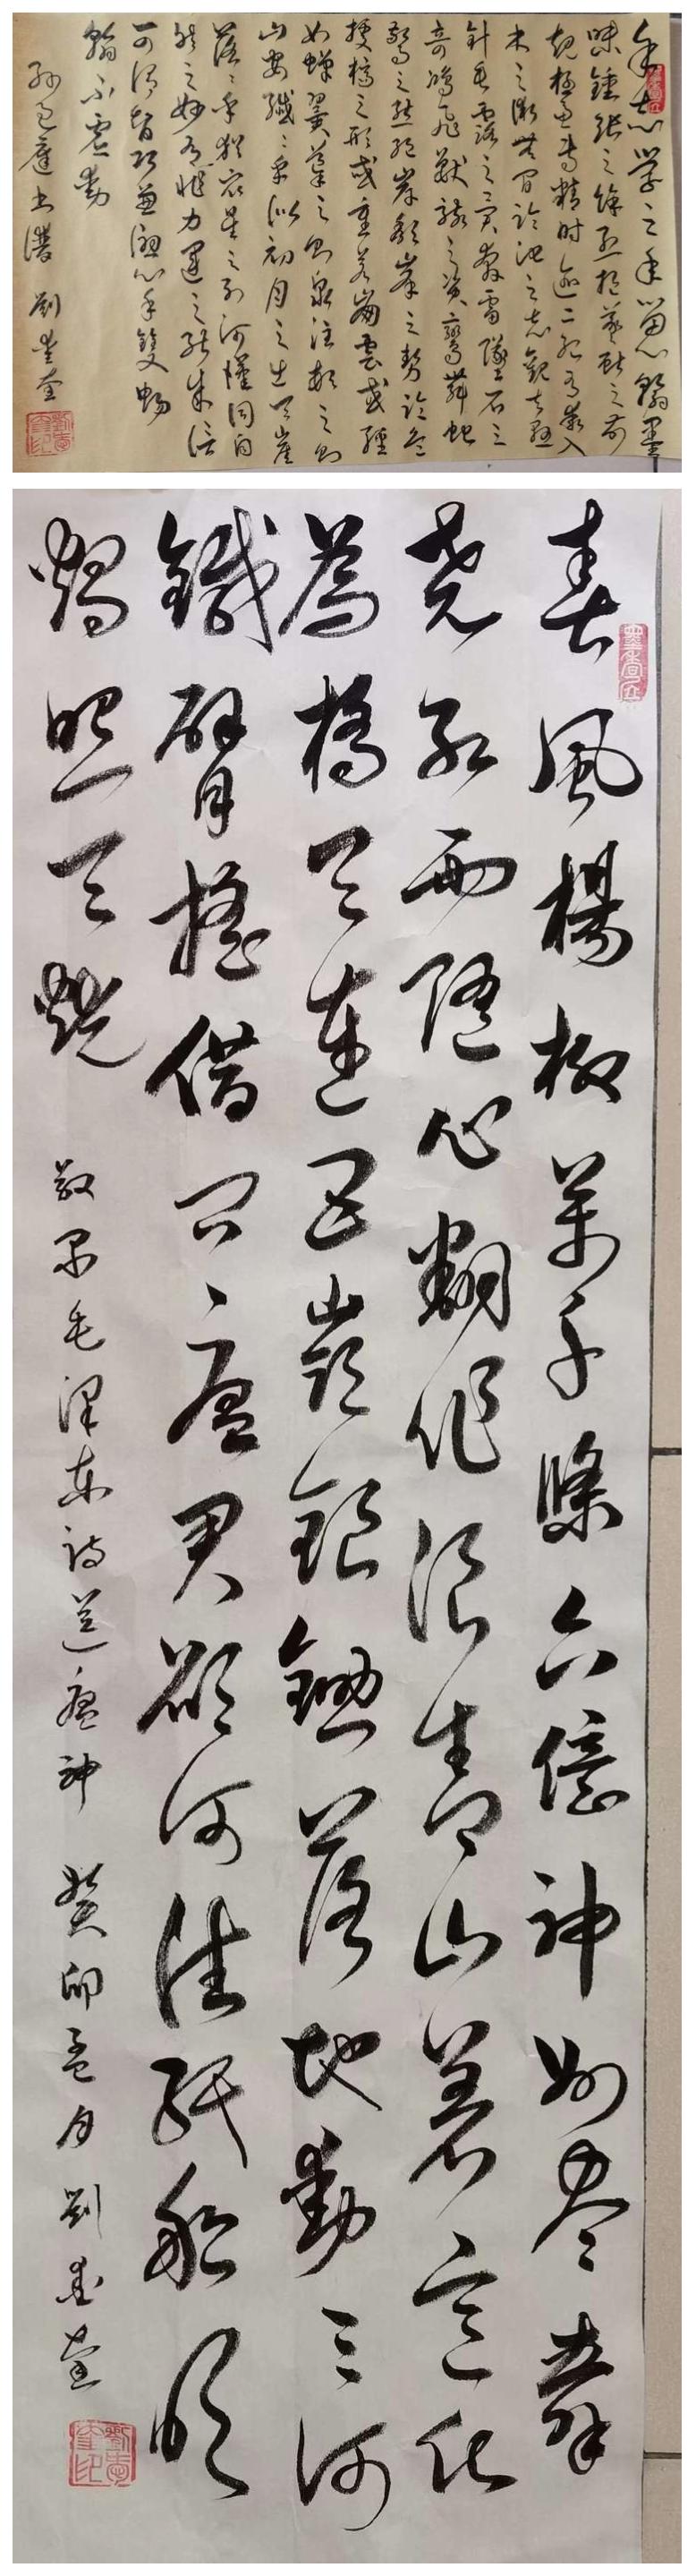 余志學之年留心翰墨
味鍾張之餘烈挹羲獻之前
規極慮專精時逾二紀有乖入
木之術無間臨池之志觀夫懸
針垂露之異奔雷墜石之
奇鴻飛獸駭之資鸞舞蛇
驚之態絕岸頹峯之勢臨危
據槁之形或重若崩雲或輕
如蟬翼導之則泉注頓之則
山安纖纖乎似初月之出天崖
落落乎猶眾星之列河漢同自
然之妙有非力運之能成信
可謂智巧兼優心手雙暢
翰不虛動
孫過庭書譜 劉
春風楊柳萬千條六億神州盡舜
堯紅雨隨心翻作浪青山着意化
為橋天連五嶺銀鋤落地動三河
鐵臂搖借問瘟君欲何往紙船明
燭照天燒 敬录毛泽东詩送瘟神 癸卯孟月劉